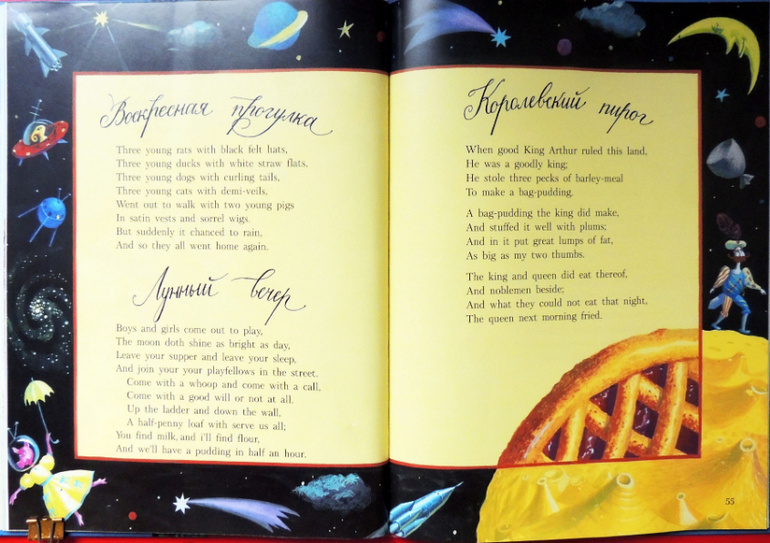 Воскресная прогулка
Three young rats with black felt hats,
Three young ducks with white straw flats,
Three young dogs with curling tails,
Three young cats with demi-veils,
Went out to walk with two young pigs
In satin vests and sorrel wigs.
But suddenly it chanced to rain,
And so they all went home again.
Лунный вечер
Boys and girls come out to play,
The moon doth shine as bright as day,
Leave your supper and leave your sleep,
And join your your playfellows in the street.
Come with a whoop and come with a call,
Come with a good will or not at all.
Up the ladder and down the wall,
A half-penny loaf with serve us all;
You find milk, and i'll find flour,
And we'll have a pudding in half an hour.
Королевский пирог
When good King Arthur ruled this land,
He was a goodly king;
He stole three pecks of barley-meal
To make a bag-pudding.
A bag-pudding the king did make,
And stuffed it well with plums;
And in it put great lumps of fat,
As big as my two thumbs.
The king and queen did eat thereof,
And noblemen beside;
And what they could not eat that night,
The queen next morning fried.
55